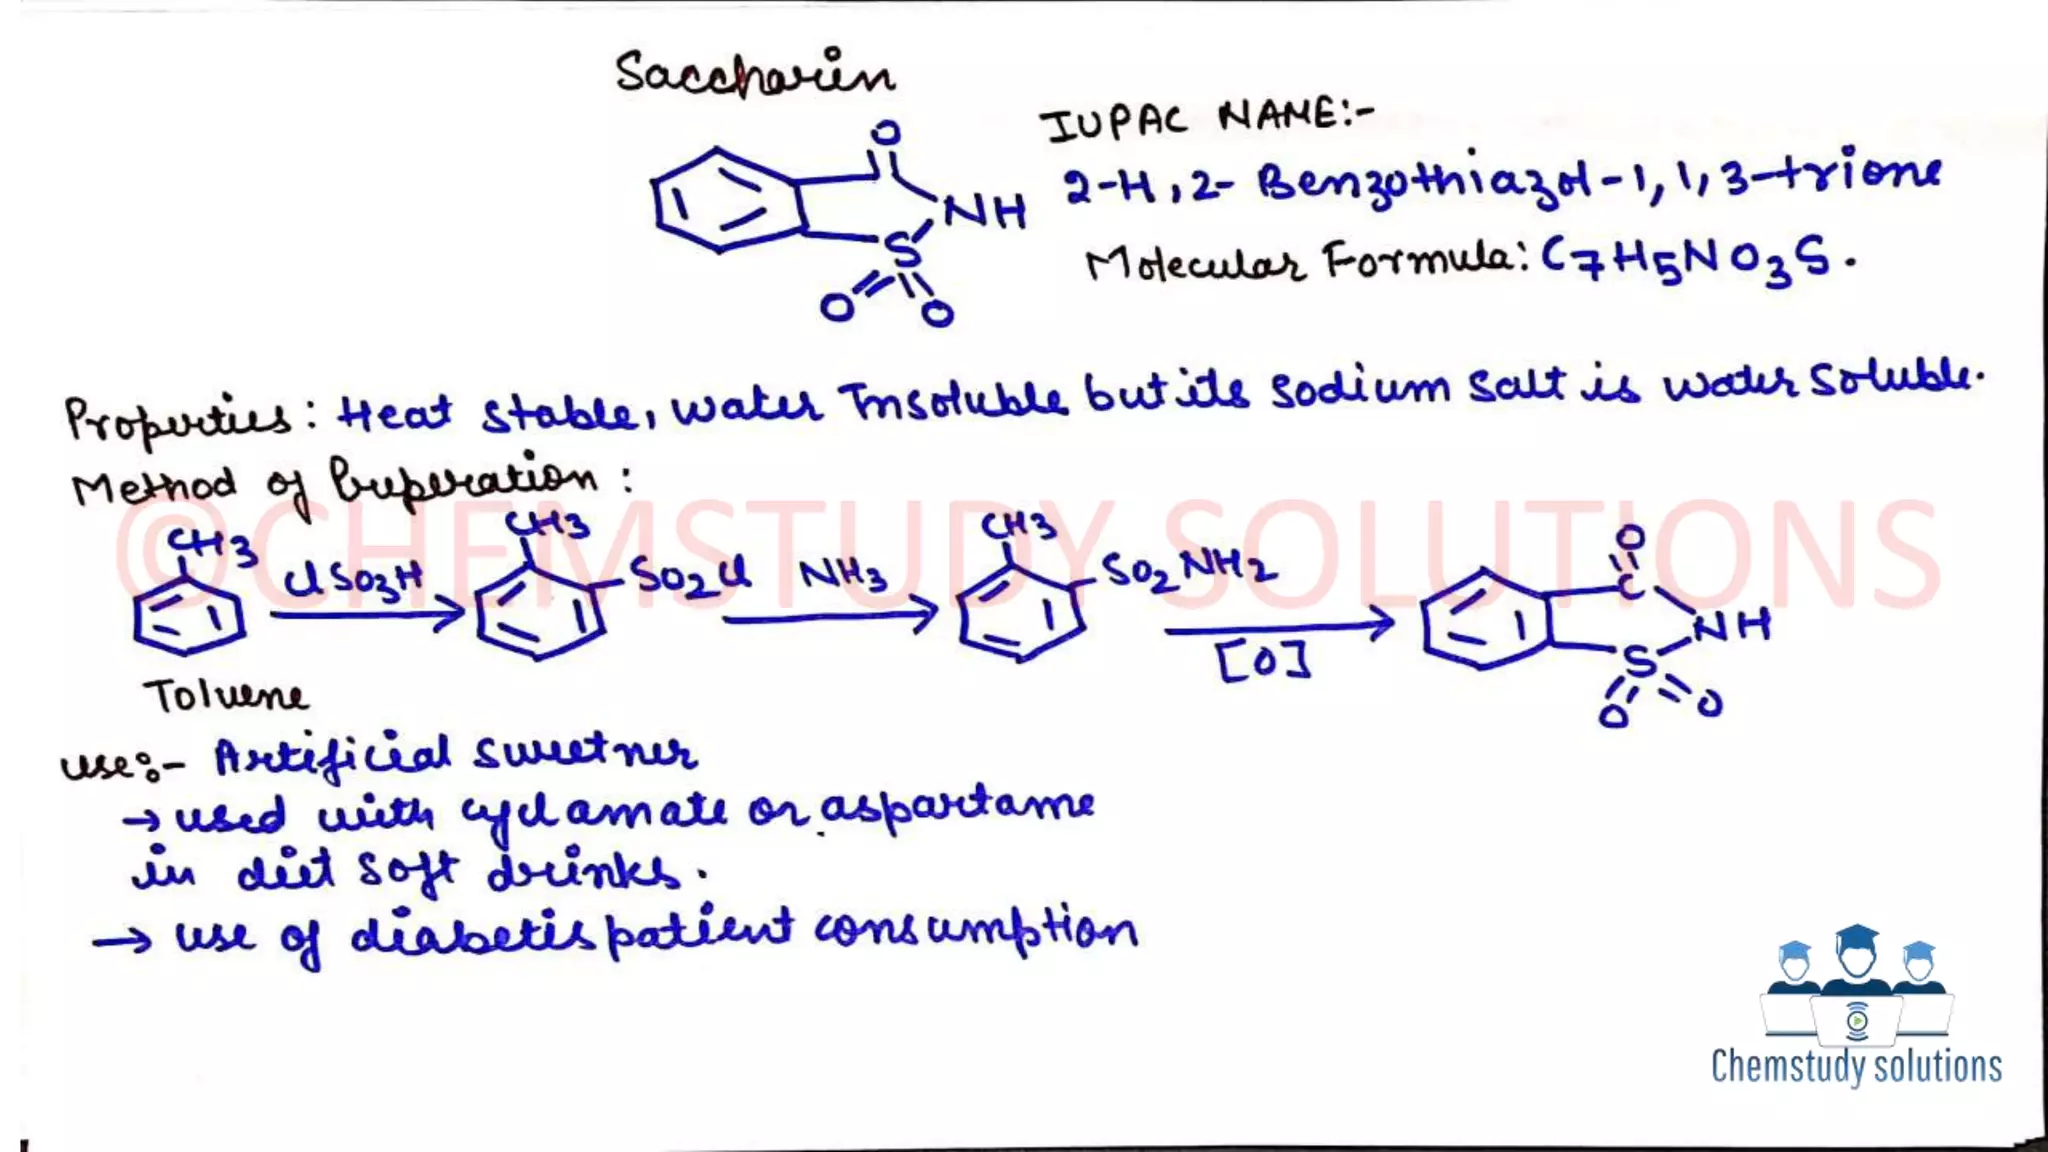 Saccharin
O
NH
S
O O
IUPAC NAME:-
2-H,2- Benzothiazol-1,1,3-trione
Molecular Formula: C7H5NO3S.
Properties: Heat stable, water Insoluble but its sodium salt is water soluble.
Method of Preperation:
©CHEMSTUDY SOLUTIONS
CH3 ClSO3H CH3 SO2Cl NH3 CH3 SO2NH2 [O] O C NH S O O
Toluene
use:- Artificial sweetner
→ used with cyclamate or aspartame
in diet soft drinks.
→ use of diabetis patient consumption
Chemstudy solutions